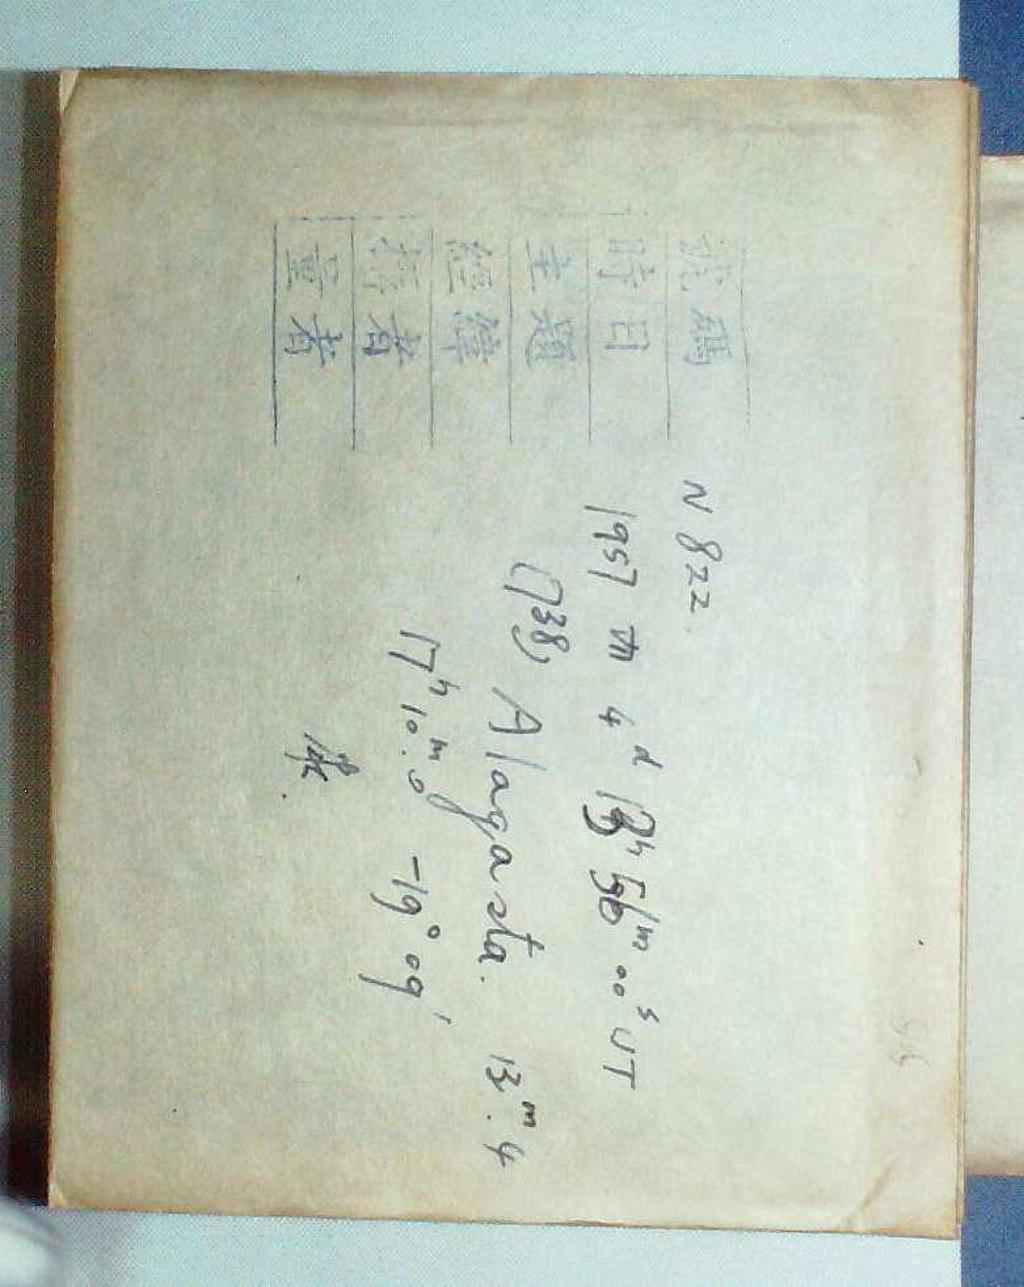 號碼 N 822.
時日 1957 VII 4ᵈ 00ˢ UT
主題 (738) Alagasta. 13ᵐ.4
經緯 17ʰ 10ᵐ.9 -19° 09′
者
量者